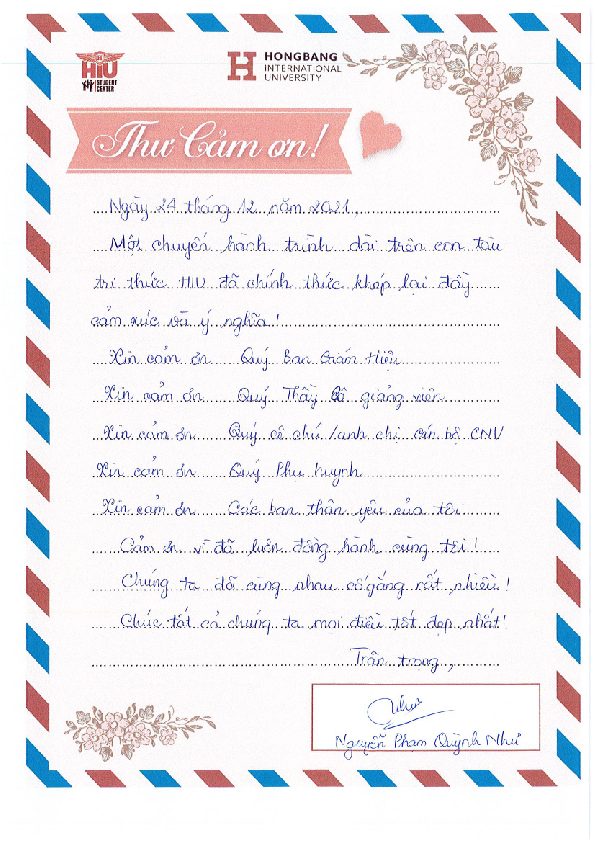 HIU
STUDENT
CENTER
HONGBANG
INTERNATIONAL
UNIVERSITY
Thư Cảm ơn!
Ngày 24 tháng 12 năm 2021,
Một chuyến hành trình dài trên con tàu
tri thức HIU đã chính thức khép lại đầy
cảm xúc và ý nghĩa!
Xin cảm ơn Quý Ban Giám Hiệu
Xin cảm ơn Quý Thầy Cô giảng viên
Xin cảm ơn Quý cô chú /anh chị cán bộ CNV
Xin cảm ơn Quý Phụ huynh
Xin cảm ơn Các bạn thân yêu của tôi
Cảm ơn vì đã luôn đồng hành cùng tôi!
Chúng ta đã cùng nhau cố gắng rất nhiều!
Chúc tất cả chúng ta mọi điều tốt đẹp nhất!
Trân trọng,
Như
Nguyễn Phạm Quỳnh Như